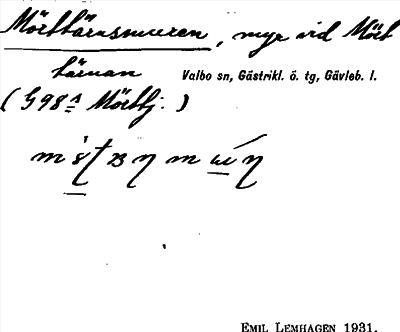 Mörttärnsmuren, myr vid Mört
tärnan Valbo sn, Gästrikl. ö. tg, Gävleb. l.
(G98ᴬ Mörttj.)
EMIL LEMHAGEN 1931.